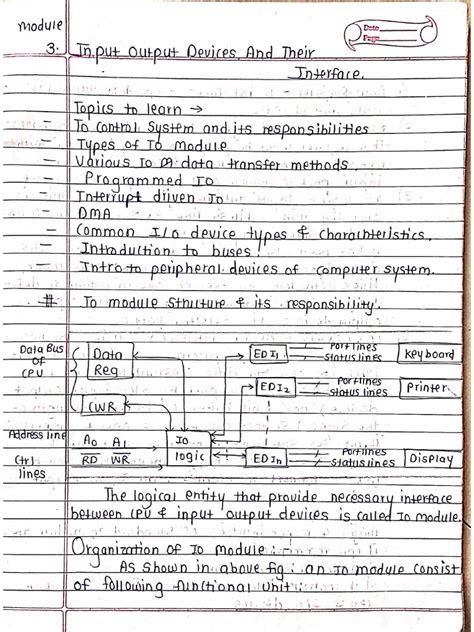 Module
3.
Date
Page
Input Output Devices And Their
Interface.
Topics to learn →
- To control System and its responsibilities
- Types of IO module
- Various IO data transfer methods.
- Programmed IO
- Interrupt driven IO
- DMA
- Common I/o device types & charachteristics.
- Introduction to buses.
- Intro to peripheral devices of computer system.
# Io module Struture & its responsibility.
Data Bus of CPU
Data Reg
CWR
Address line
A0 A1
RD WR
Ctrl lines
IO logic
EDI1
Port lines
Status lines
Keyboard
EDI2
Port lines
Status lines
Printer
EDIn
Port lines
Status lines
Display
The logical entity that provide necessary interface
between CPU & input output devices is called Io module.
Organization of Io module :-
As shown in above fig: an Io module consist
of following functional unit: